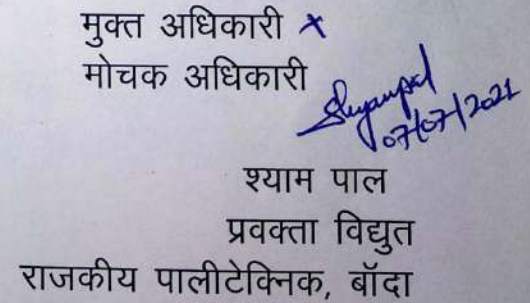 मुक्त अधिकारी ×
मोचक अधिकारी
Shyampal
07/07/2021
श्याम पाल
प्रवक्ता विद्युत
राजकीय पालीटेक्निक, बॉदा